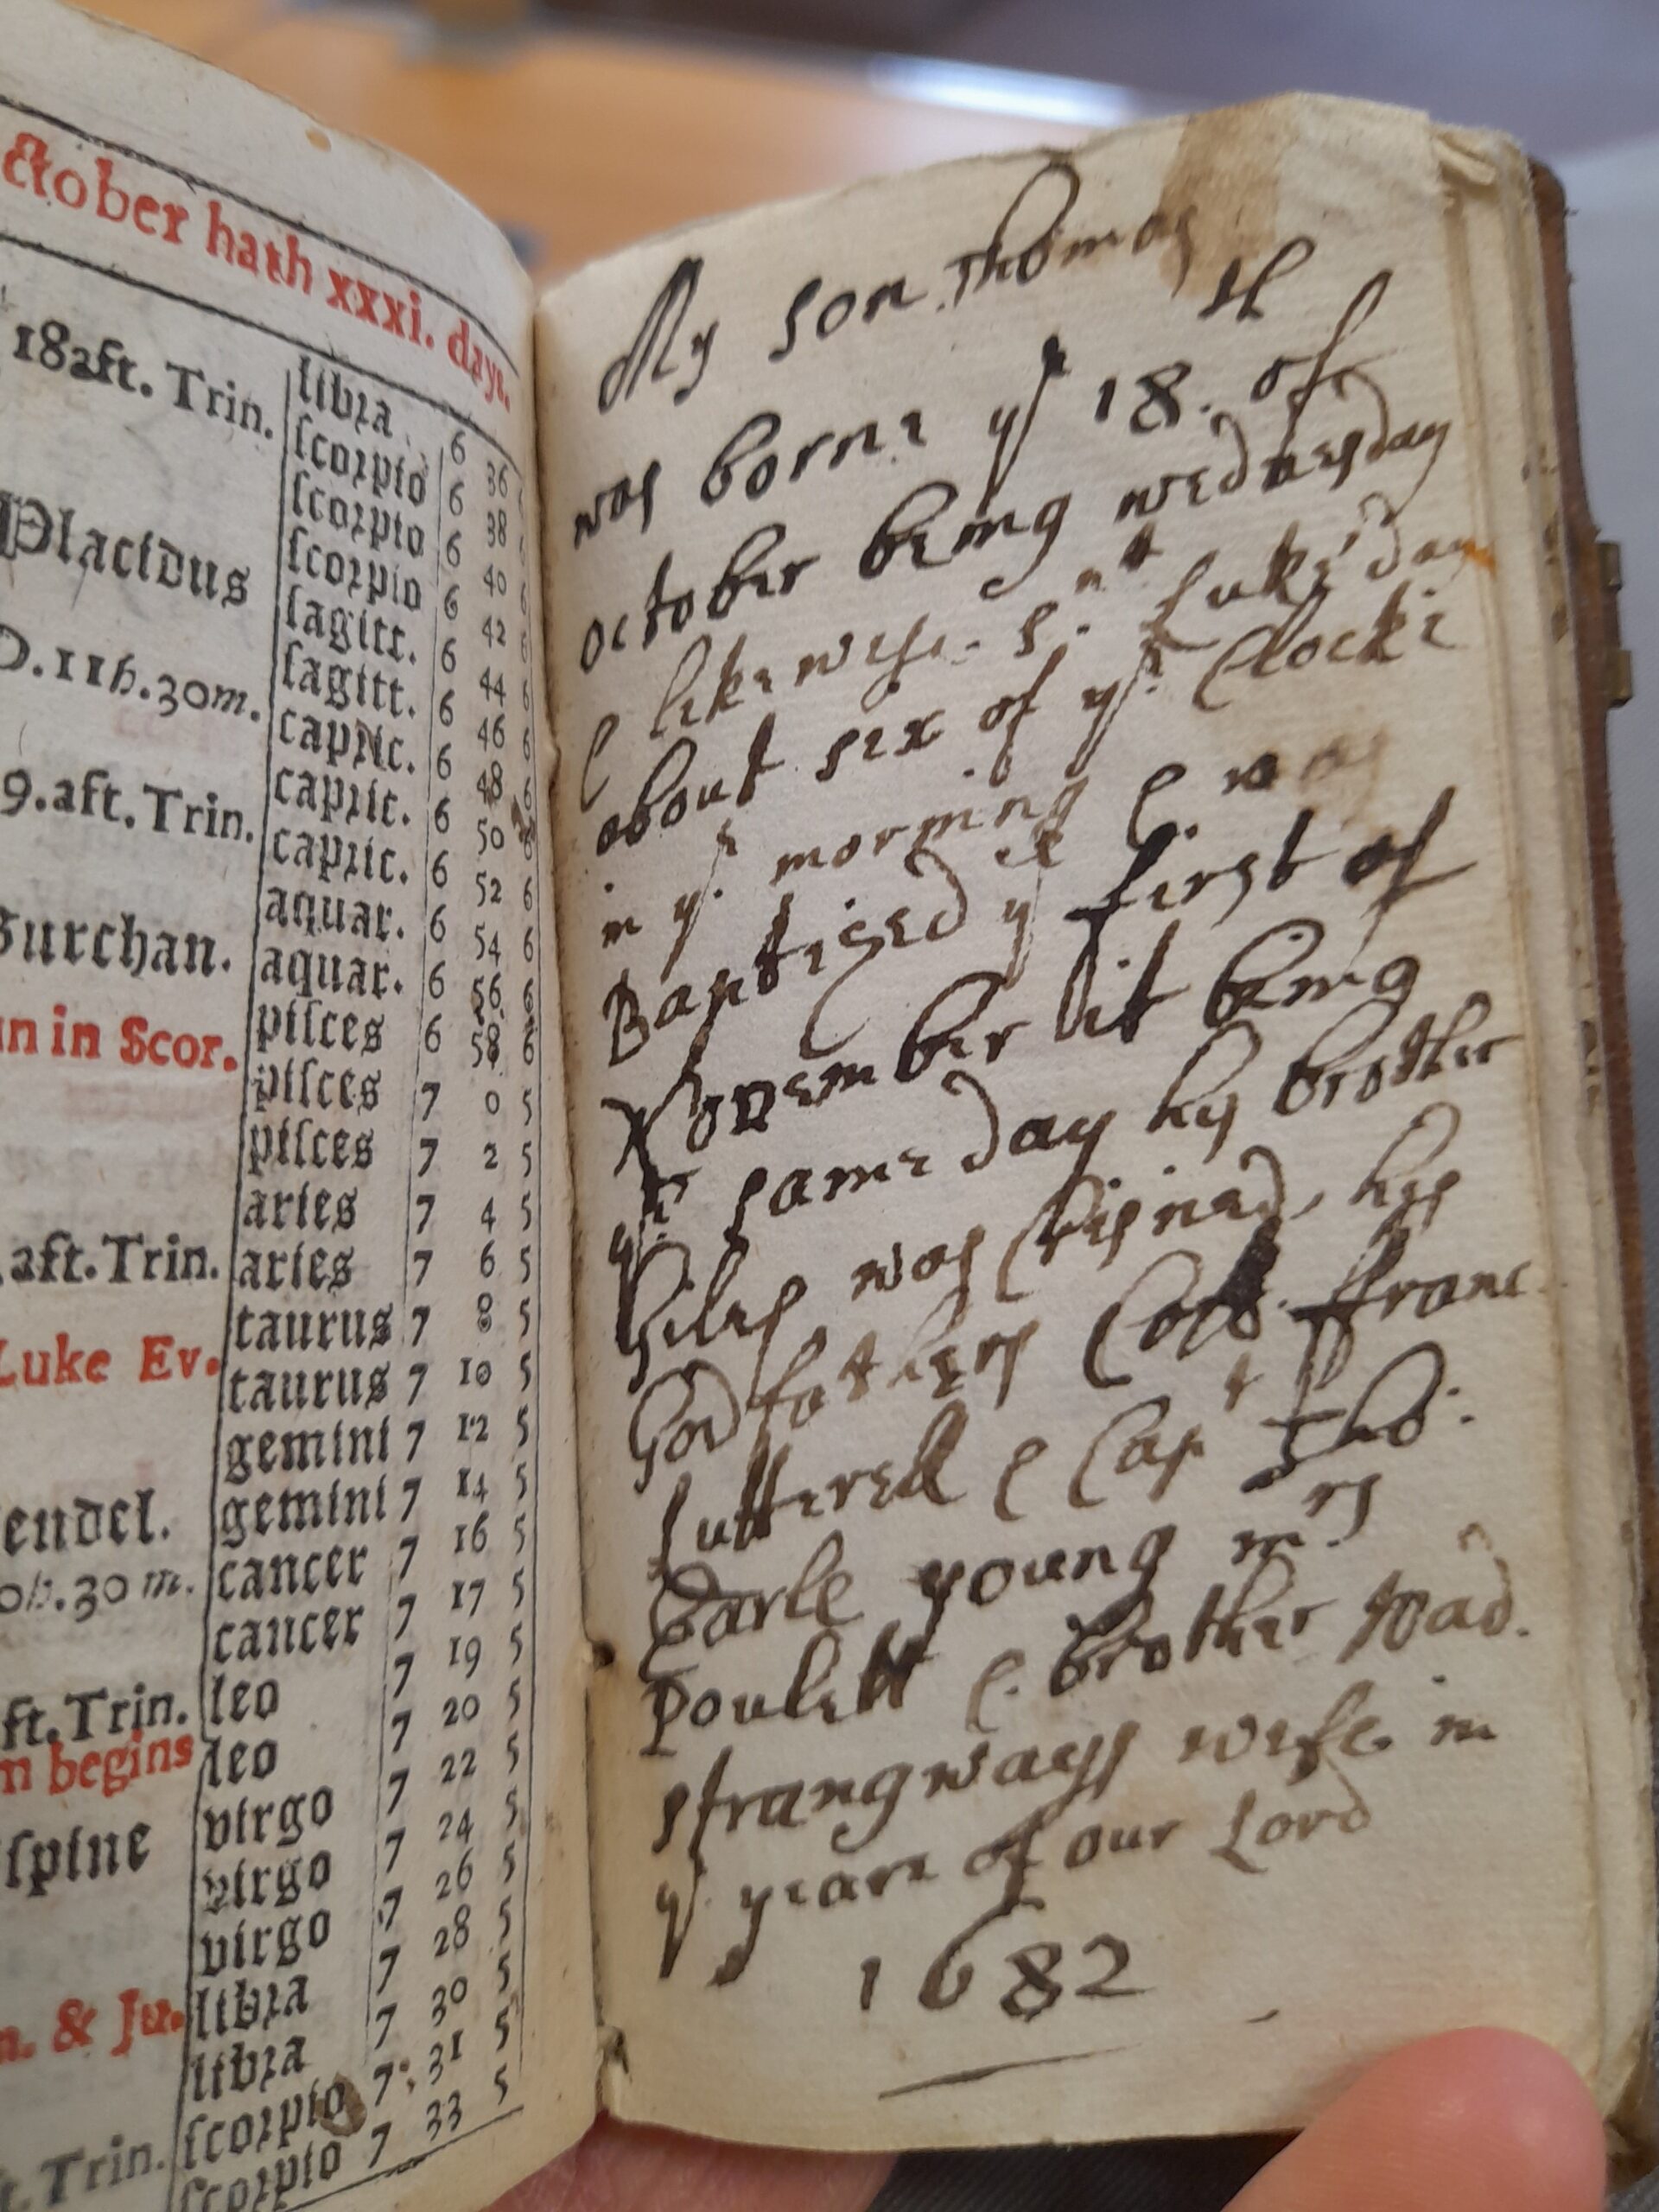 ctober hath xxxi. days.
18 aft. Trin. libra 6 36
scorpio 6 38 6
scorpio 6 40 6
Placidus scorpio 6 42 6
sagitt. 6 44 6
D. 11h. 30m. sagitt. 6 46 6
capric. 6 48 6
capric. 6 50 6
9. aft. Trin. capric. 6 52 6
aquar. 6 54 6
Burchan. aquar. 6 56 6
n in Scor. pisces 6 58 6
pisces 7 0 5
pisces 7 2 5
aries 7 4 5
aft. Trin. aries 7 6 5
taurus 7 8 5
Luke Ev. taurus 7 10 5
gemini 7 12 5
endel. gemini 7 14 5
0h. 30 m. cancer 7 16 5
cancer 7 17 5
ft. Trin. leo 7 19 5
m begins leo 7 20 5
virgo 7 22 5
spine virgo 7 24 5
virgo 7 26 5
n. & Ju. libra 7 28 5
libra 7 30 5
scorpio 7 31 5
t. Trin. scorpio 7 33 5
My son Thomas
was borne ye 18th of
october being wednesday
& likewise St Lukes day
about six of ye Clocke
in ye morning & was
Baptised ye first of
November it being
ye same day hys brother
Giles was Crisned, hys
Godfathers Coll. ffranc
Luttrell & Capt Tho:
Earle young mrs
Poulett & brother Wad.
strangways wife in
ye yeare of our Lord
1682